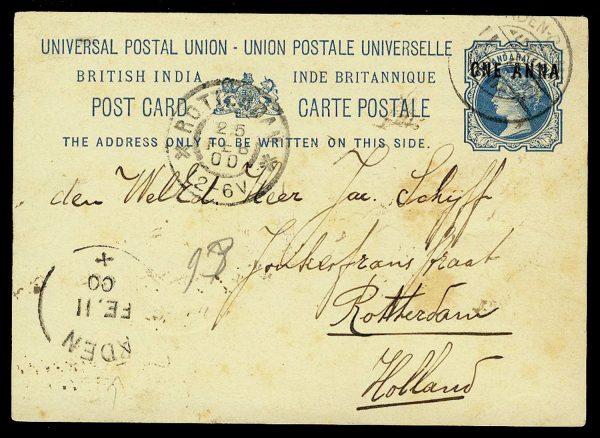 UNIVERSAL POSTAL UNION - UNION POSTALE UNIVERSELLE
BRITISH INDIA INDE BRITANNIQUE
POST CARD CARTE POSTALE
THE ADDRESS ONLY TO BE WRITTEN ON THIS SIDE.
ONE ANNA
ROTTERDAM
25
FEB
00
den Heer Jac. Schijff
Rotterdam
Holland
13
ADEN
FE.11
00